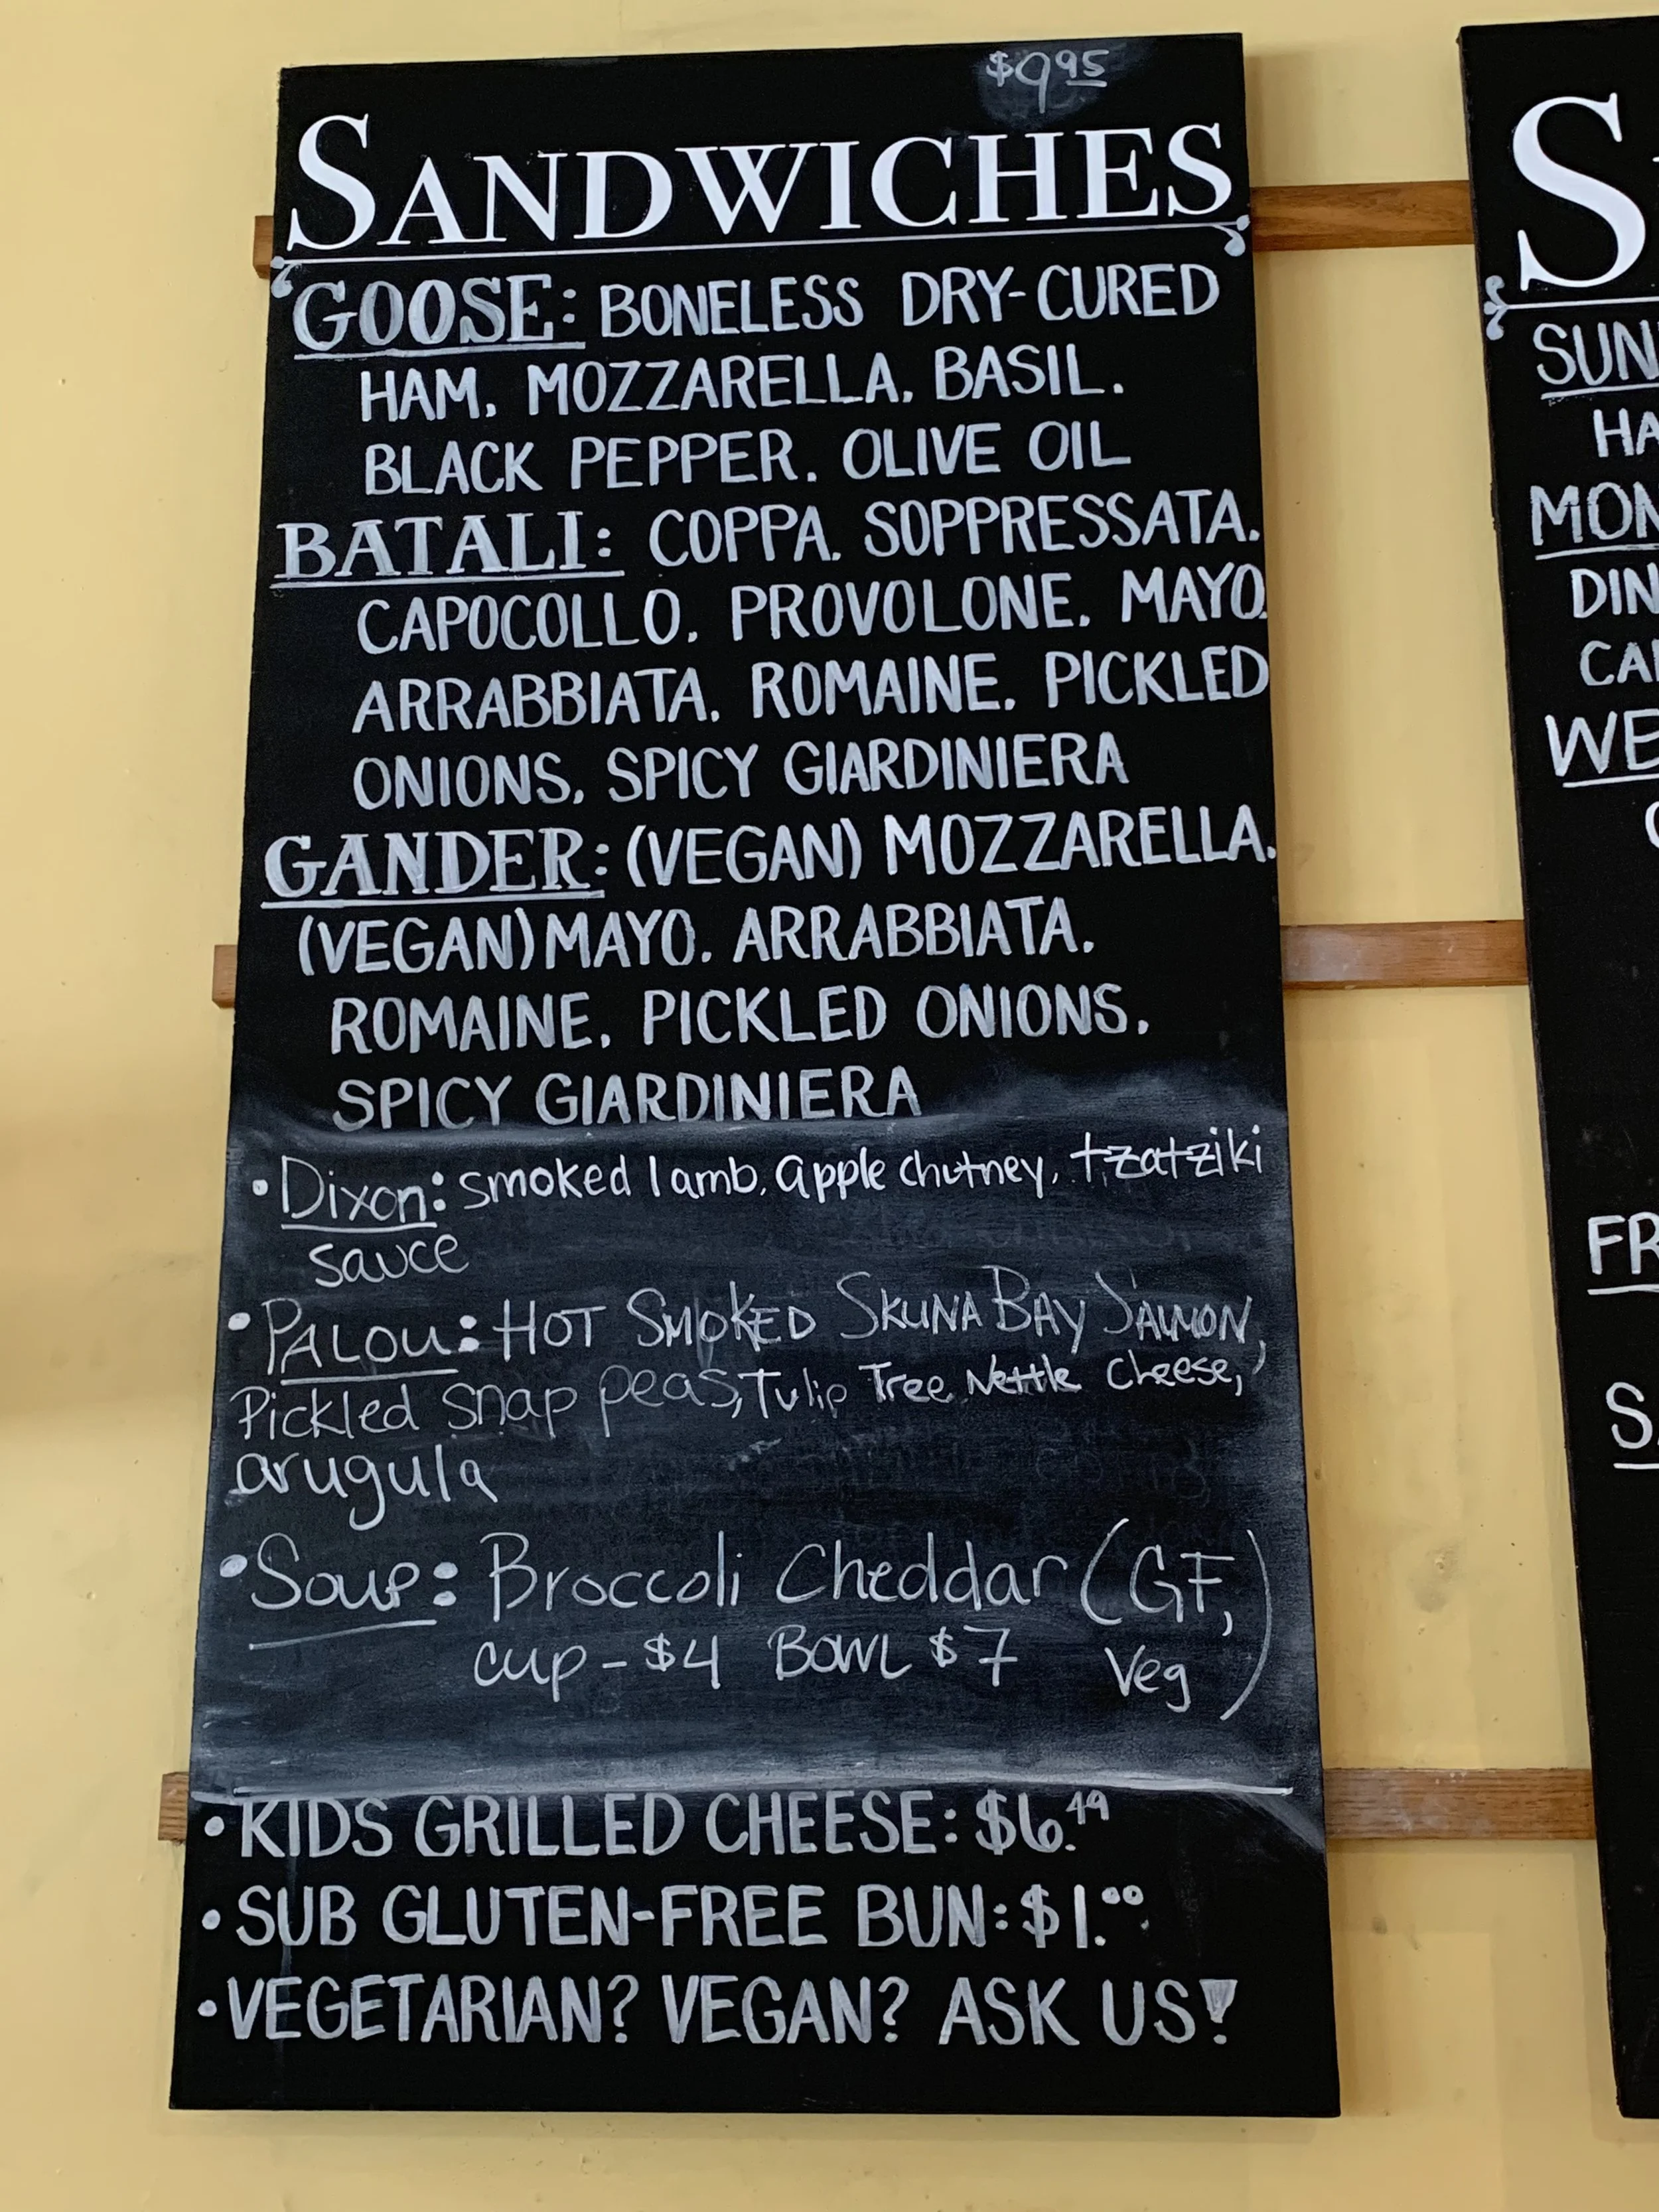 $9.95
SANDWICHES
GOOSE: BONELESS DRY-CURED
HAM. MOZZARELLA. BASIL.
BLACK PEPPER. OLIVE OIL
BATALI: COPPA. SOPPRESSATA.
CAPOCOLLO. PROVOLONE. MAYO.
ARRABBIATA. ROMAINE. PICKLED
ONIONS. SPICY GIARDINIERA
GANDER: (VEGAN) MOZZARELLA.
(VEGAN) MAYO. ARRABBIATA.
ROMAINE. PICKLED ONIONS.
SPICY GIARDINIERA
• Dixon: smoked lamb, apple chutney, tzatziki
sauce
• PALOU: HOT SMOKED SKUNA BAY SALMON,
Pickled snap peas, Tulip Tree Nettle cheese,
arugula
• Soup: Broccoli Cheddar (GF,
cup - $4 BOWL $7 Veg)
• KIDS GRILLED CHEESE: $6.49
• SUB GLUTEN-FREE BUN: $1.00
• VEGETARIAN? VEGAN? ASK US!
S
SUN
HA
MON
DIN
CA
WE
FR
S